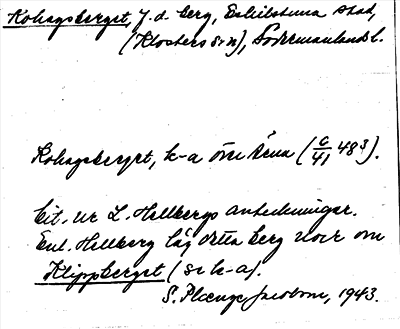 Kohagsberget, f.d. berg, Eskilstuna stad,
(Klosters sn), Södermanlands l.
Kohagsberget, k-a över Årna (C/41 48³).
Cit. ur L. Hellbergs anteckningar.
Enl. Hellberg låg detta berg norr om
Klippberget (se k-a).
S. Plænge Jacobson, 1943.